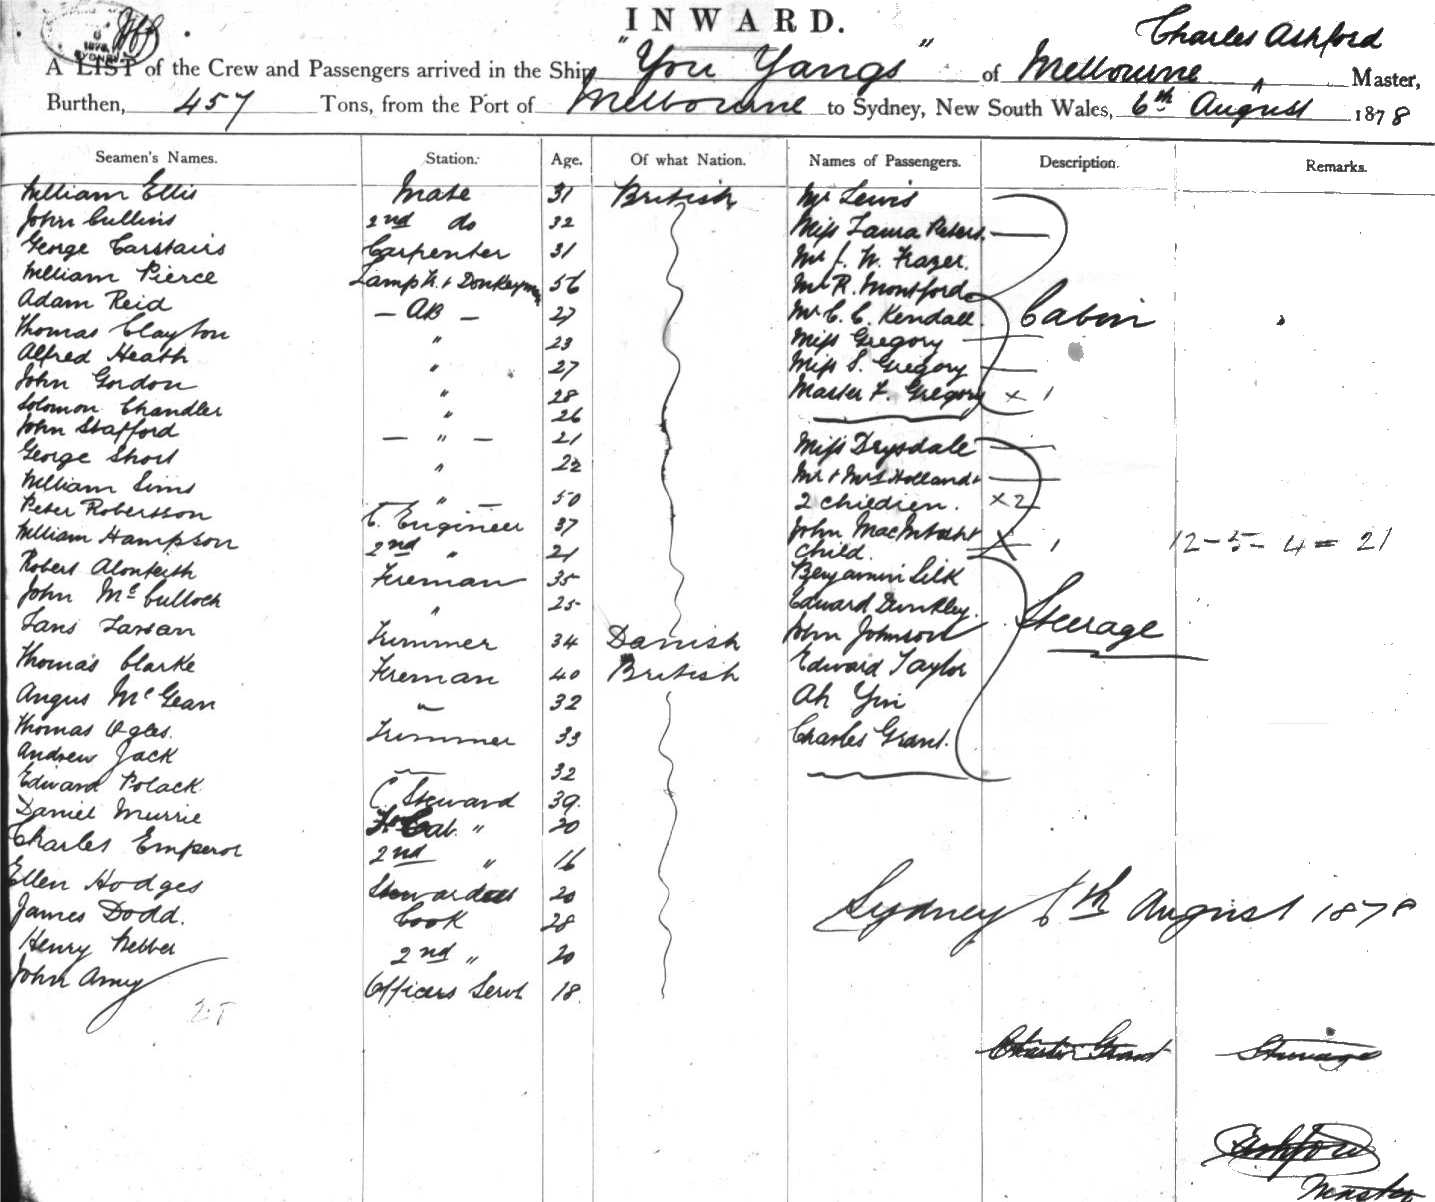 INWARD.
Charles Ashford
A LIST of the Crew and Passengers arrived in the Ship "You Yangs" of Melbourne Master,
Burthen, 457 Tons, from the Port of Melbourne to Sydney, New South Wales, 6th August 1878
Seamen's Names. Station. Age. Of what Nation. Names of Passengers. Description. Remarks.
William Ellis Mate 31 British Mr Lewis
John Cullins 2nd do 32 Miss Laura Peters.
George Carstairs Carpenter 31 Mr J. W. Frazer.
William Pierce Lamp Tr. & Donkeyman 56 Mr R. Montford
Adam Reid — AB — 27 Mr C. C. Kendall. Cabin
Thomas Clayton " 23 Miss Gregory
Alfred Heath " 27 Miss S. Gregory
John Gordon " 28 Master F. Gregory x 1
Solomon Chandler " 26
John Stafford — " — 21 Miss Drysdale
George Short " 22 Mr & Mrs Holland &
William Sims " 50 2 children. x 2
Peter Robertson C. Engineer 37 John MacIntosh &
William Hampson 2nd " 21 child. x 1 12-5-4=21
Robert Alonteith Fireman 35 Benjamin Silk
John McCulloch " 25 Edward Dunkley.
Lans Larsan Trimmer 34 Danish John Johnson Steerage
Thomas Clarke Fireman 40 British Edward Taylor
Angus McGean " 32 Ah Yin
Thomas Ogles. Trimmer 33 Charles Grant.
Andrew Jack 32
Edward Polack C. Steward 39
Daniel Murrie Cab. " 20
Charles Emperor 2nd " 16
Ellen Hodges Stewardess 20
James Dodd. Cook 28 Sydney 6th August 1878
Henry Webber 2nd " 20
John Amey Officers Servt 18
Charles Grant Steerage
CAshford
Master